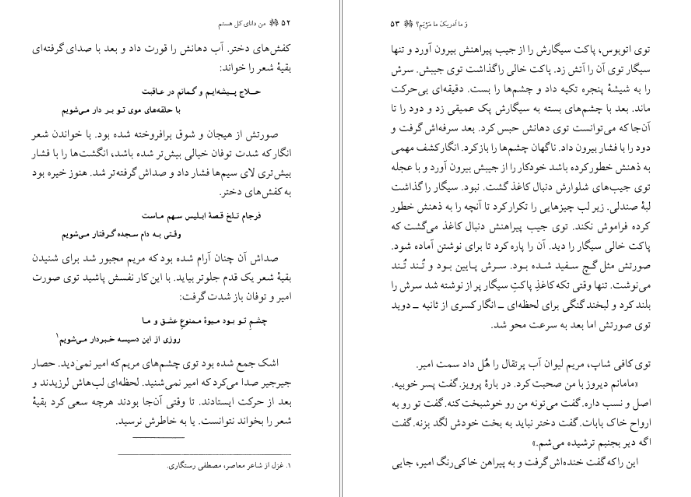 ۵۲ من دانای کل هستم
کفش‌های دختر. آب دهانش را قورت داد و بعد با صدای گرفته‌ای
بقیهٔ شعر را خواند:
حلاج پیشه‌ایم و گمانم در عاقبت
با حلقه‌های موی تو بر دار می‌شویم
صورتش از هیجان و شوق برافروخته شده بود. با خواندن شعر
انگار که شدت توفان خیالی بیش‌تر شده باشد، انگشت‌ها را با فشار
بیش‌تری لای سیم‌ها فشار داد و صداش گرفته‌تر شد. هنوز خیره بود
به کفش‌های دختر.
فرجام تلخ قصهٔ ابلیس سهم ماست
وقتی به دام سجده گرفتار می‌شویم
صداش آن چنان آرام شده بود که مریم مجبور شد برای شنیدن
بقیهٔ شعر یک قدم جلوتر بیاید. با این کار نفسش پاشید توی صورت
امیر و توفان باز شدت گرفت:
چشم تو بود میوهٔ ممنوع عشق و ما
روزی از این دسیسه خبردار می‌شویم۱
اشک جمع شده بود توی چشم‌های مریم که امیر نمی‌دید. حصار
جیرجیر صدا می‌کرد که امیر نمی‌شنید. لحظه‌ای لب‌هاش لرزیدند و
بعد از حرکت ایستادند. تا وقتی آن‌جا بودند هرچه سعی کرد بقیهٔ
شعر را بخواند نتوانست. یا به خاطرش نرسید.
۱. غزل از شاعر معاصر، مصطفی رستگاری.
وَ ما اَدریکَ ما مَرْیَم؟ ۵۳
توی اتوبوس، پاکت سیگارش را از جیب پیراهنش بیرون آورد و تنها
سیگار توی آن را آتش زد. پاکت خالی را گذاشت توی جیبش. سرش
را به شیشهٔ پنجره تکیه داد و چشم‌ها را بست. دقیقه‌ای بی‌حرکت
ماند. بعد با چشم‌های بسته به سیگارش پک عمیقی زد و دود را تا
آن‌جا که می‌توانست توی دهانش حبس کرد. بعد سرفه‌اش گرفت و
دود را با فشار بیرون داد. ناگهان چشم‌ها را باز کرد. انگار کشف مهمی
به ذهنش خطور کرده باشد خودکار را از جیبش بیرون آورد و با عجله
توی جیب‌های شلوارش دنبال کاغذ گشت. نبود. سیگار را گذاشت
لبهٔ صندلی. زیر لب چیزهایی را تکرار کرد تا آنچه را به ذهنش خطور
کرده فراموش نکند. توی جیب پیراهنش دنبال کاغذ می‌گشت که
پاکت خالی سیگار را دید. آن را پاره کرد تا برای نوشتن آماده شود.
صورتش مثل گچ سفید شده بود. سرش پایین بود و تُند تُند
می‌نوشت. تنها وقتی تکه کاغذِ پاکتِ سیگار پر از نوشته شد سرش را
بلند کرد و لبخند گنگی برای لحظه‌ای ـ انگار کسری از ثانیه ـ دوید
توی صورتش اما بعد به سرعت محو شد.
توی کافی شاپ، مریم لیوان آب پرتقال را هُل داد سمت امیر.
«مامانم دیروز با من صحبت کرد. در بارهٔ پرویز. گفت پسر خوبیه.
اصل و نسب داره. گفت می‌تونه من رو خوشبخت کنه. گفت تو رو به
ارواح خاک بابات. گفت دختر نباید به بخت خودش لگد بزنه. گفت
اگه دیر بجنبم ترشیده می‌شم.»
این را که گفت خنده‌اش گرفت و به پیراهن خاکی‌رنگ امیر، جایی